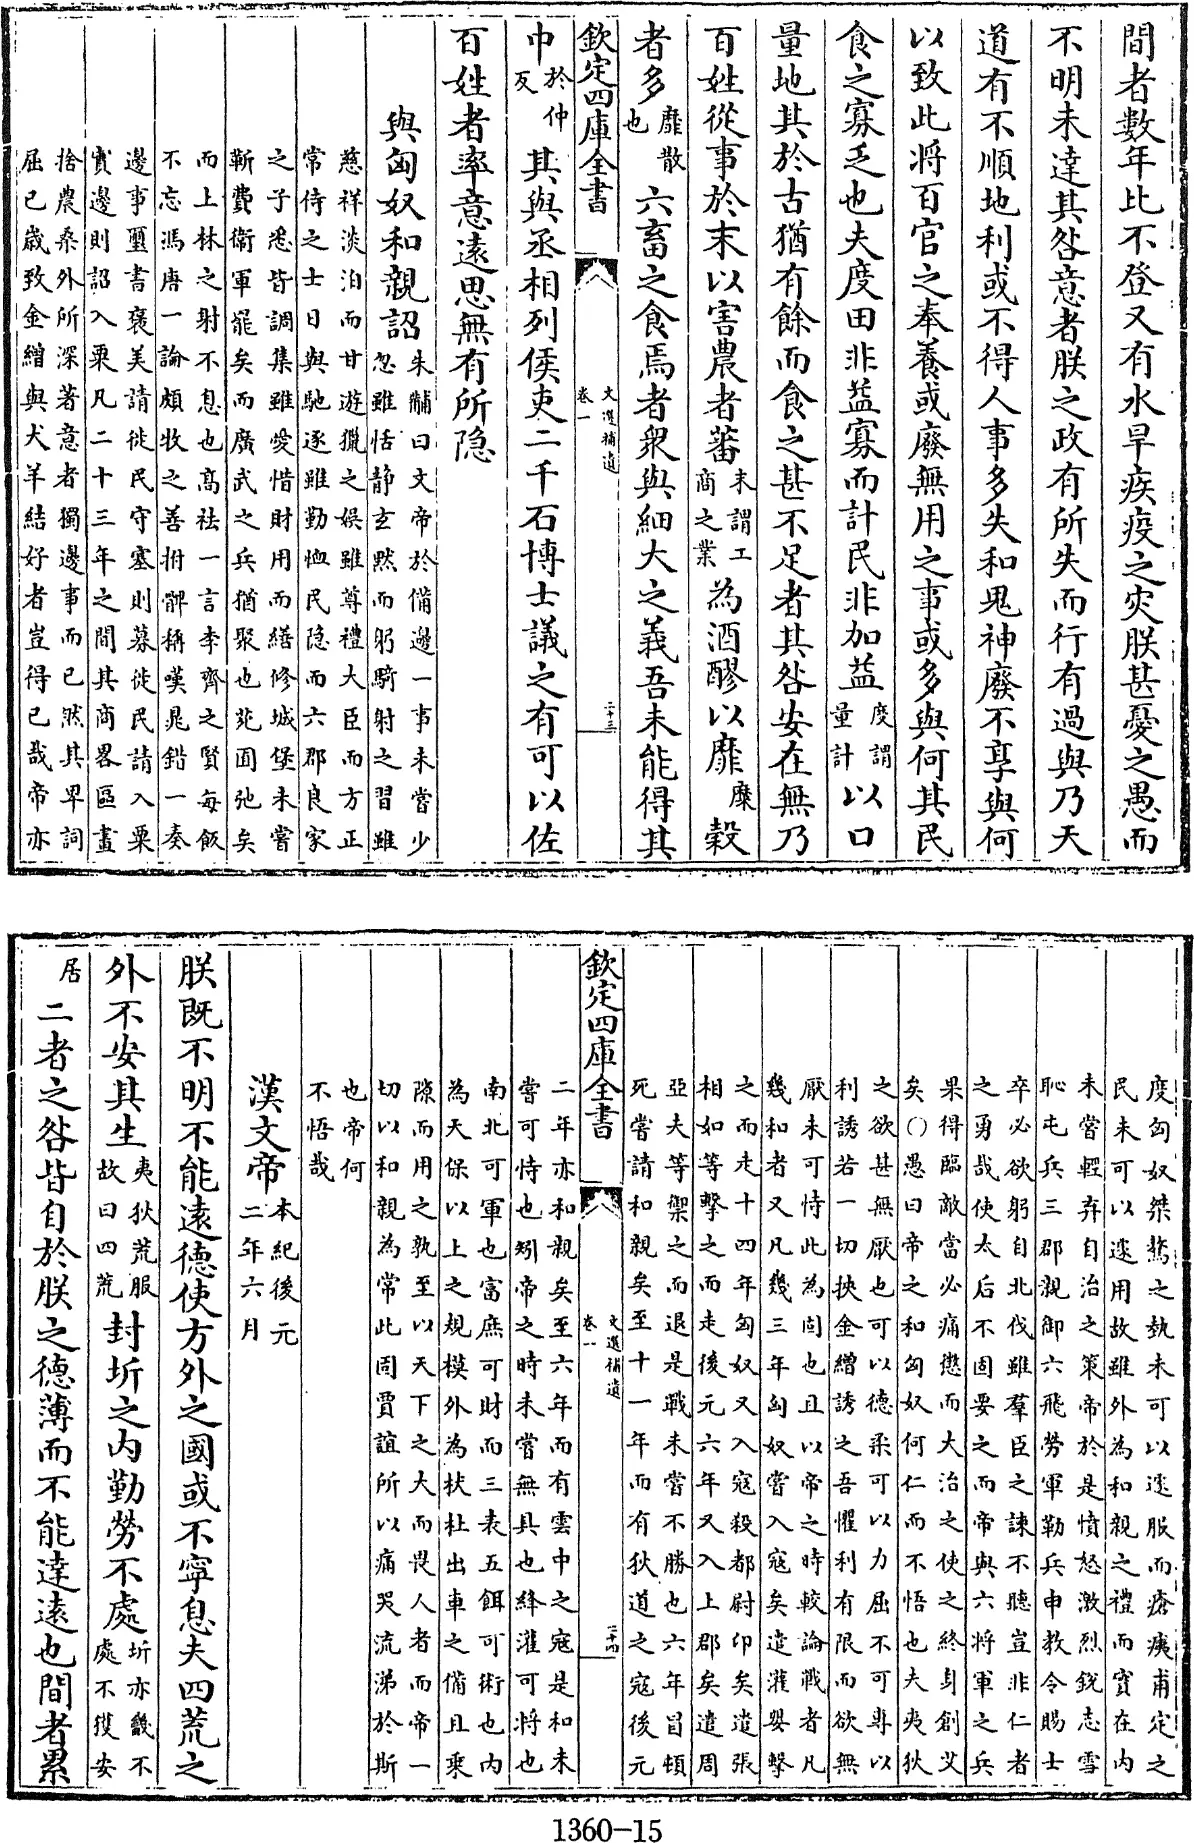 間者數年比不登又有水旱疾疫之灾朕甚憂之愚而
不明未達其咎意者朕之政有所失而行有過與乃天
道有不順地利或不得人事多失和鬼神廢不享與何
以致此将百官之奉養或廢無用之事或多與何其民
食之寡乏也夫度田非益寡而計民非加益度謂量計以口
量地其於古猶有餘而食之甚不足者其咎安在無乃
百姓從事於末以害農者蕃末謂工商之業為酒醪以靡糜穀
者多靡散也六畜之食焉者衆與細大之義吾未能得其
欽定四庫全書
文選補遺
卷一
二十三
中於仲反其與丞相列侯吏二千石博士議之有可以佐
百姓者率意遠思無有所隐
與匈奴和親詔
朱黼曰文帝於備邊一事未嘗少
忽雖恬静玄黙而躬騎射之習雖
慈祥淡泊而甘遊獵之娯雖尊禮大臣而方正
常侍之士日與馳逐雖勤恤民隐而六郡良家
之子悉皆調集雖愛惜財用而繕修城堡未嘗
靳費衛軍罷矣而廣武之兵猶聚也苑囿弛矣
而上林之射不息也髙袪一言李齊之賢每飯
不忘馮唐一論頗牧之善拊髀稱嘆晁錯一奏
邊事璽書褒美請徙民守塞則募徙民請入粟
實邊則詔入粟凡二十三年之間其商畧區畫
捨農桑外所深著意者獨邊事而已然其卑詞
屈己歳致金繒與犬羊結好者豈得已哉帝亦
度匈奴桀驁之執未可以遽服而瘡痍甫定之
民未可以遽用故雖外為和親之禮而實在内
未嘗輕弃自治之策帝於是憤怒激烈鋭志雪
恥屯兵三郡親御六飛勞軍勒兵申教令賜士
卒必欲躬自北伐雖羣臣之諫不聽豈非仁者
之勇哉使太后不固要之而帝與六將軍之兵
果得臨敵當必痛懲而大治之使之終身創艾
矣〇愚曰帝之和匈奴何仁而不悟也夫夷狄
之欲甚無厭也可以德柔可以力屈不可專以
利誘若一切挟金繒誘之吾懼利有限而欲無
厭未可恃此為固也且以帝之時較論戰者凡
幾和者又凡幾三年匈奴嘗入寇矣遣灌嬰擊
之而走十四年匈奴又入寇殺都尉卬矣遣張
相如等擊之而走後元六年又入上郡矣遣周
亞夫等禦之而退是戰未嘗不勝也六年冒頓
死嘗請和親矣至十一年而有狄道之寇後元
欽定四庫全書
文選補遺
卷一
二十四
二年亦和親矣至六年而有雲中之寇是和未
嘗可恃也矧帝之時未嘗無具也絳灌可将也
南北可軍也富庶可財而三表五餌可術也内
為天保以上之規模外為杕杜出車之備且乘
隙而用之孰至以天下之大而畏人者而帝一
切以和親為常此固賈誼所以痛哭流涕於斯
也帝何
不悟哉
漢文帝本紀後元二年六月
朕既不明不能遠德使方外之國或不寧息夫四荒之
外不安其生夷狄荒服故曰四荒封圻之内勤勞不處圻亦畿不處不獲安
居二者之咎皆自於朕之德薄而不能達遠也間者累
1360-15